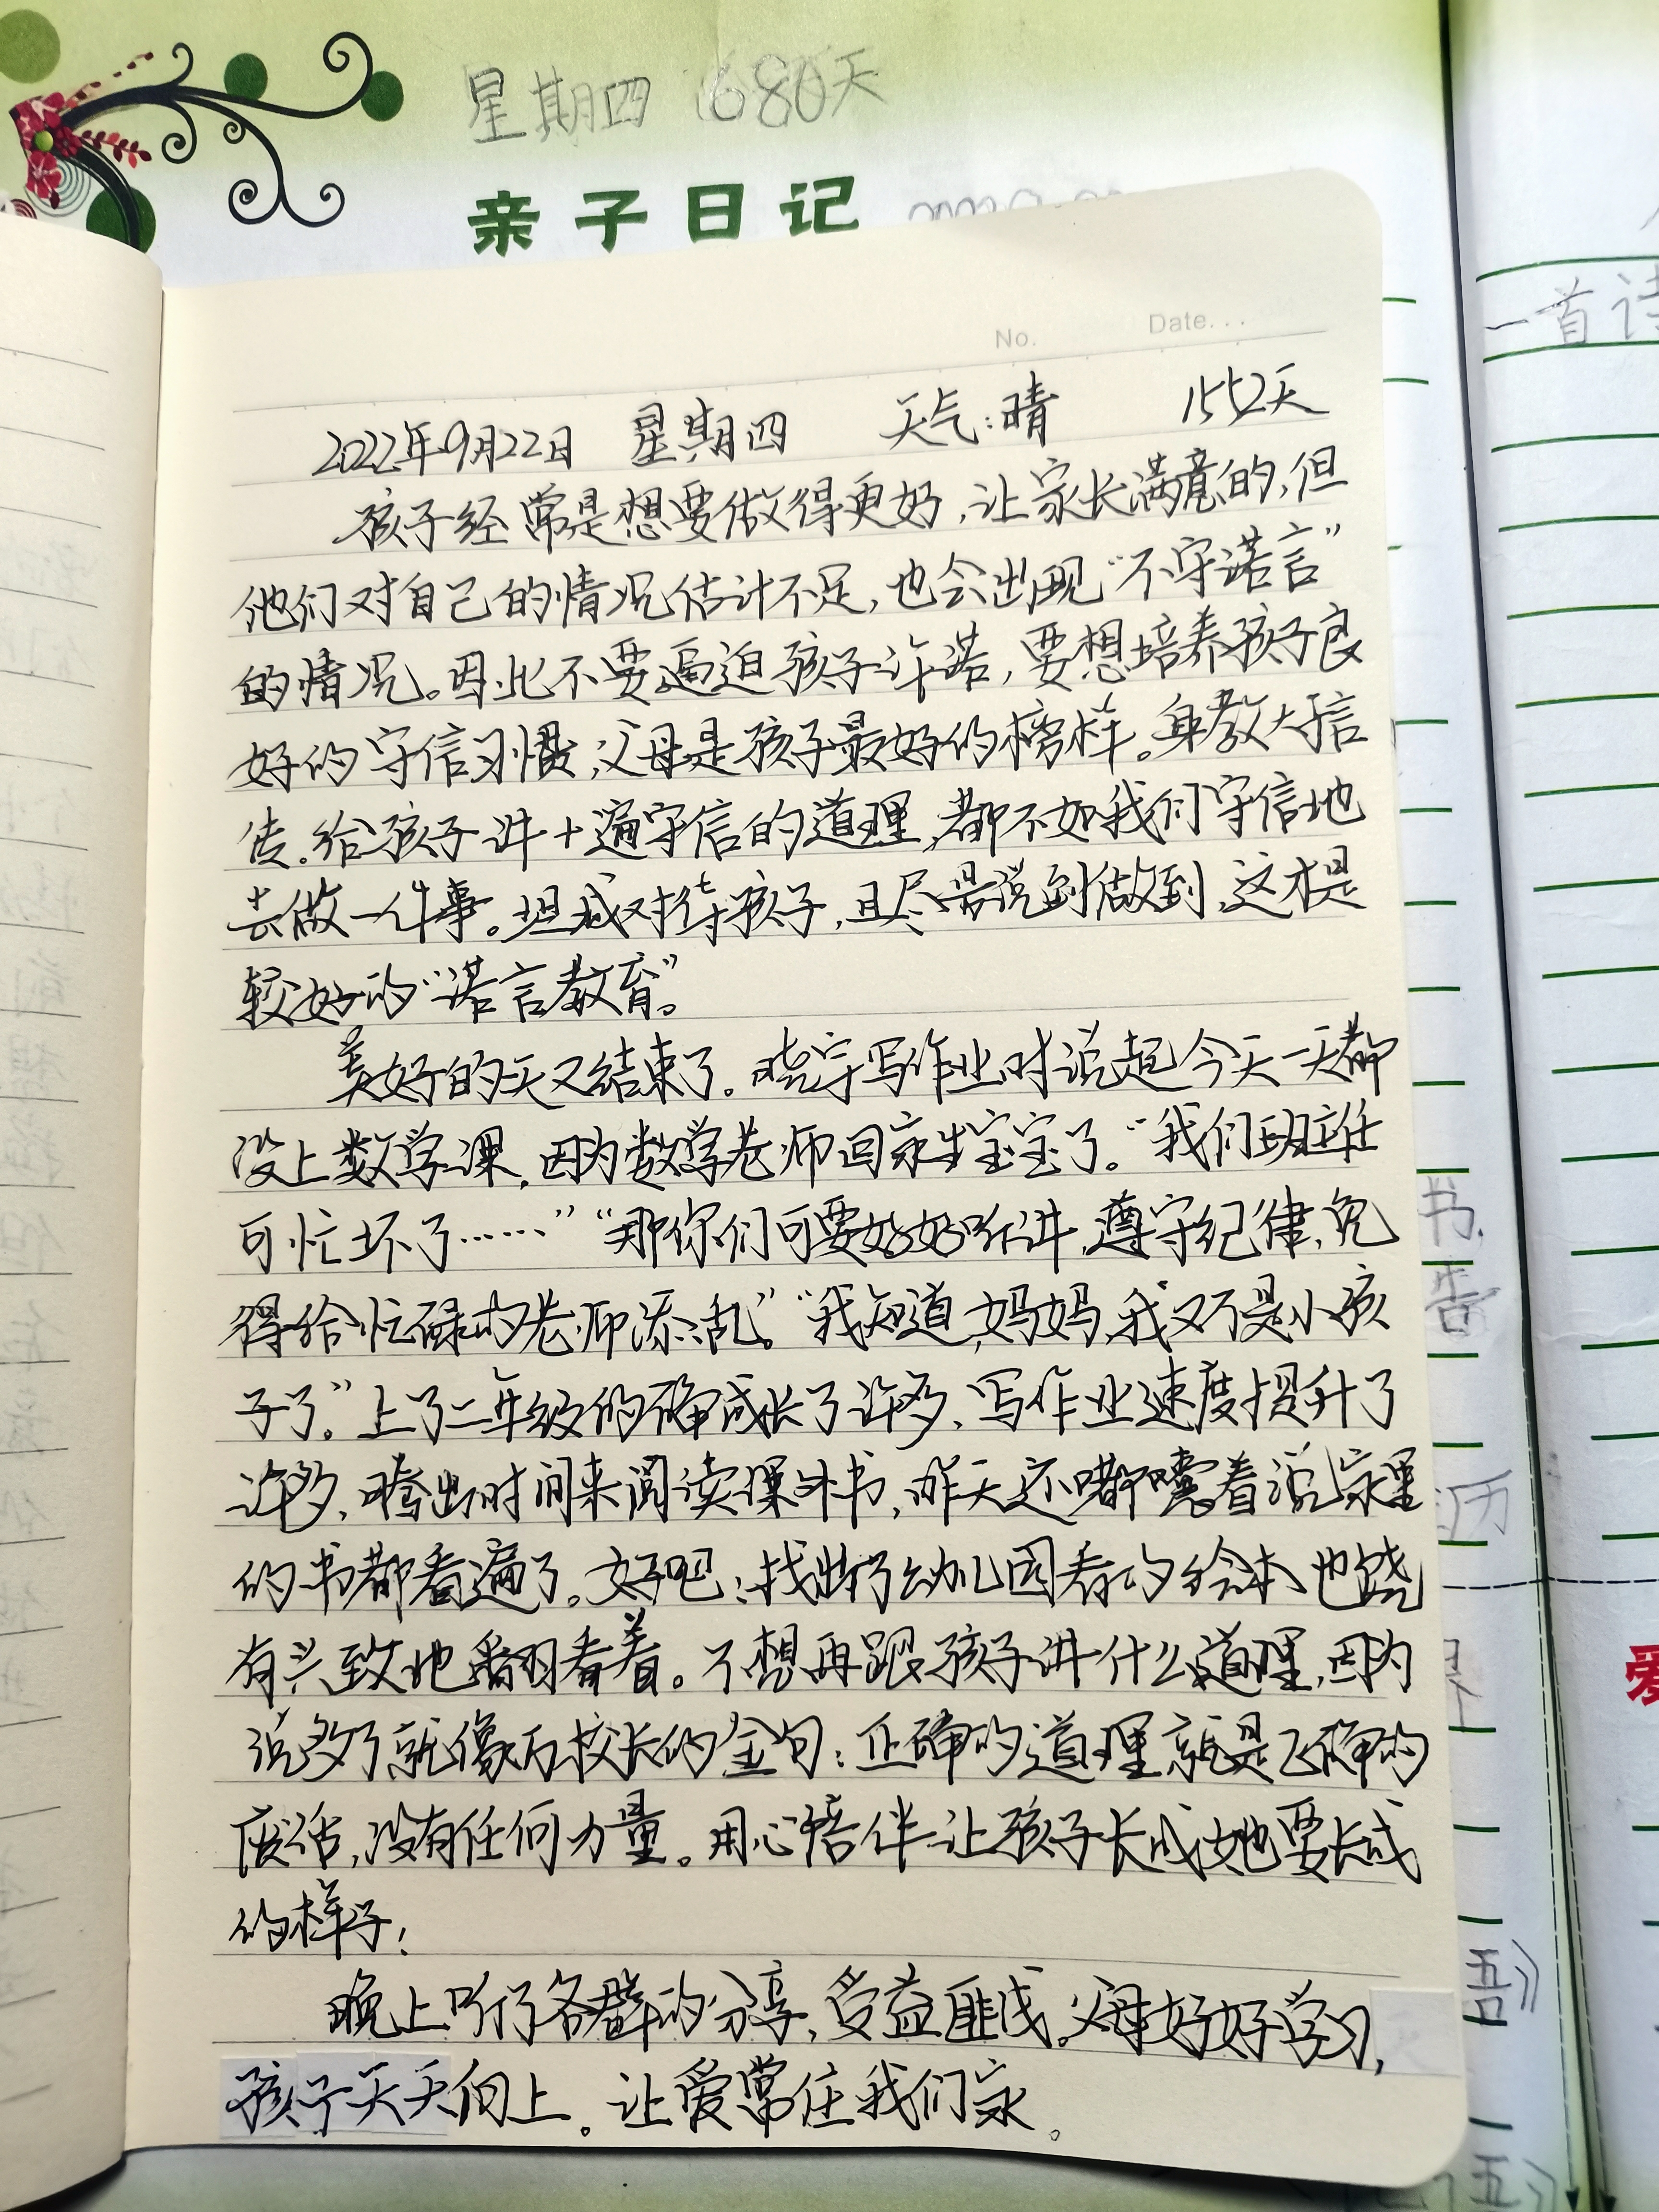 星期四 1680天
亲子日记
No. Date...
2022年9月22日 星期四 天气:晴 1552天
孩子经常是想要做得更好,让家长满意的,但
他们对自己的情况估计不足,也会出现“不守诺言”
的情况。因此不要逼迫孩子许诺,要想培养孩子良
好的守信习惯,父母是孩子最好的榜样。身教大于言
传。给孩子讲十遍守信的道理,都不如我们守信地
去做一件事。坦诚对待孩子,且尽量说到做到,这才是
较好的“诺言教育”。
美好的天又结束了。晓宇写作业时说起今天一天都
没上数学课,因为数学老师回家生宝宝了。“我们班主任
可忙坏了……”“那你们可要好好听讲,遵守纪律,免
得给忙碌的老师添乱。”“我知道,妈妈,我又不是小孩
子了。”上了二年级的确成长了许多,写作业速度提升了
许多,腾出时间来阅读课外书,昨天还嘟囔着说家里
的书都看遍了。好吧!找出了幼儿园看的绘本也饶
有兴致地翻看着。不想再跟孩子讲什么道理,因为
说多了就像万校长的金句:正确的道理就是正确的
废话,没有任何力量。用心陪伴让孩子长成她要长成
的样子!
晚上听了各群的分享,受益匪浅。父母好好学习,
孩子天天向上。让爱常住我们家。
一首诗
书
历
爱
语》
语》